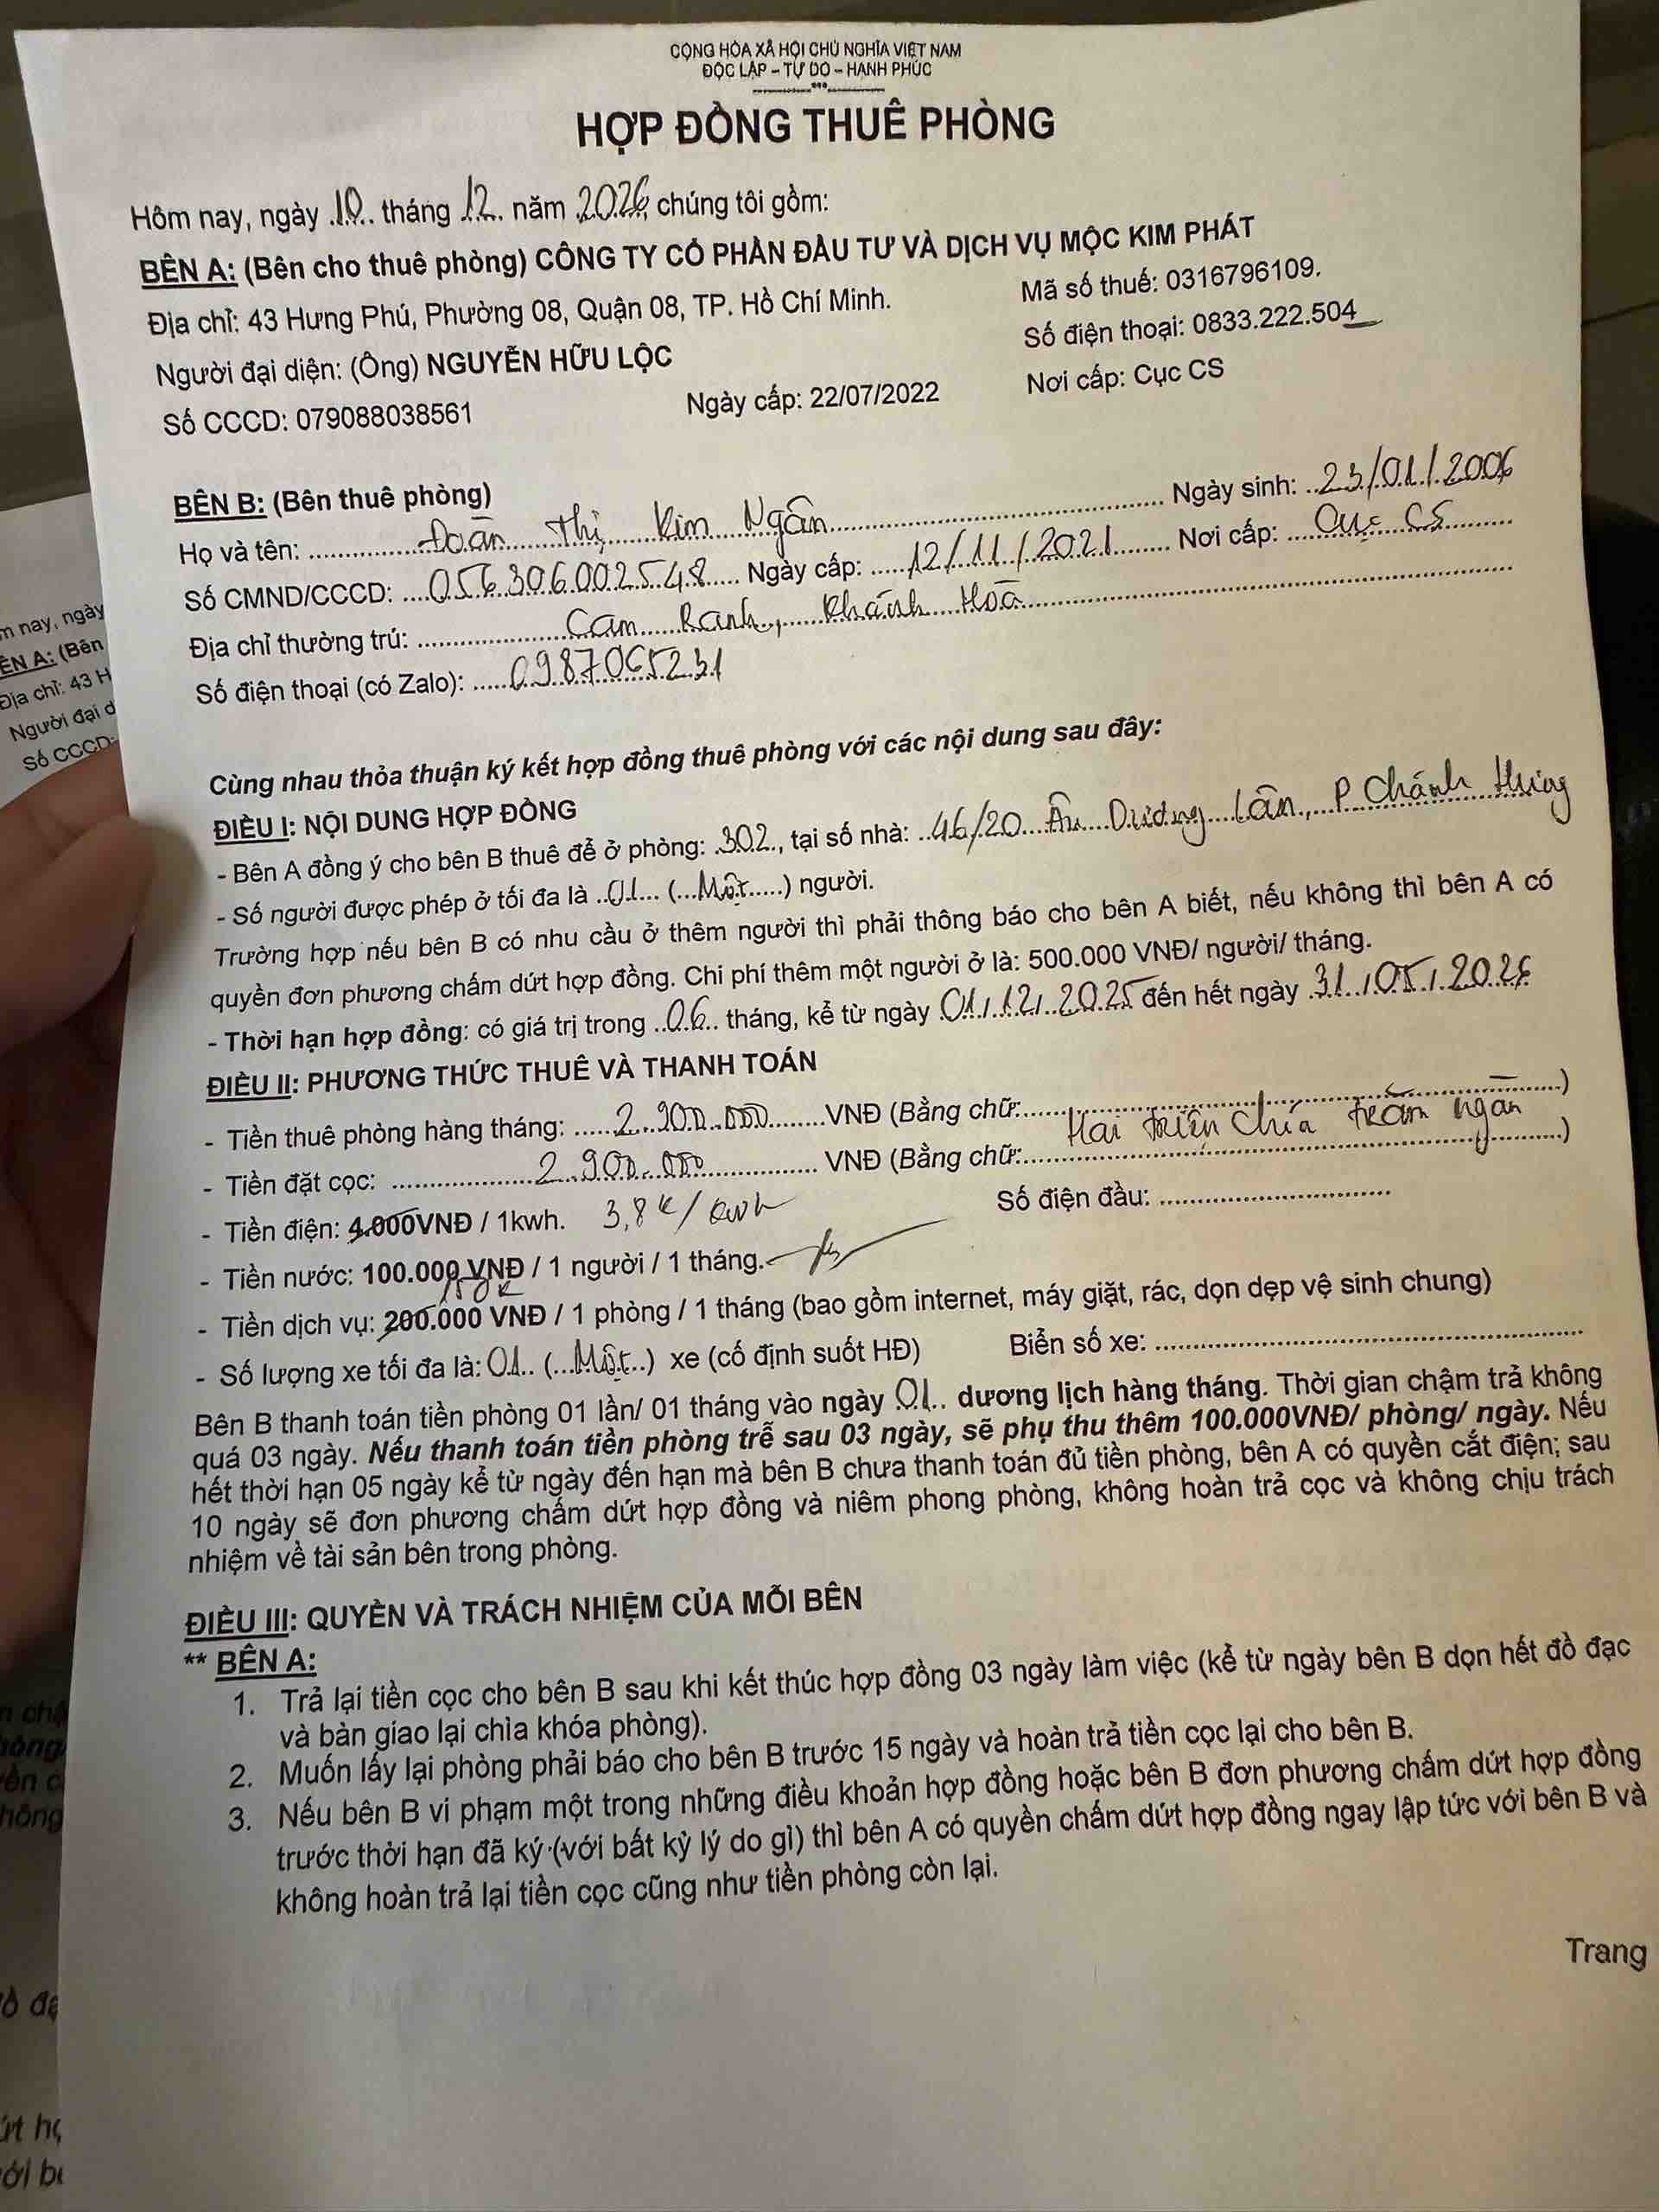 CỘNG HÒA XÃ HỘI CHỦ NGHĨA VIỆT NAM
ĐỘC LẬP – TỰ DO – HẠNH PHÚC
HỢP ĐỒNG THUÊ PHÒNG
Hôm nay, ngày 10 tháng 12 năm 2026, chúng tôi gồm:
BÊN A: (Bên cho thuê phòng) CÔNG TY CỔ PHẦN ĐẦU TƯ VÀ DỊCH VỤ MỘC KIM PHÁT
Địa chỉ: 43 Hưng Phú, Phường 08, Quận 08, TP. Hồ Chí Minh. Mã số thuế: 0316796109.
Người đại diện: (Ông) NGUYỄN HỮU LỘC Số điện thoại: 0833.222.504
Số CCCD: 079088038561 Ngày cấp: 22/07/2022 Nơi cấp: Cục CS
BÊN B: (Bên thuê phòng)
Họ và tên: Đoàn Thị Kim Ngân Ngày sinh: 23/01/2006
Số CMND/CCCD: 056306002548 Ngày cấp: 12/11/2021 Nơi cấp: Cục CS
Địa chỉ thường trú: Cam Ranh, Khánh Hoà
Số điện thoại (có Zalo): 0987065231
Cùng nhau thỏa thuận ký kết hợp đồng thuê phòng với các nội dung sau đây:
ĐIỀU I: NỘI DUNG HỢP ĐỒNG
- Bên A đồng ý cho bên B thuê để ở phòng: 302, tại số nhà: 46/20 Âu Dương Lân, P Chánh Hưng
- Số người được phép ở tối đa là 01 (Một) người.
Trường hợp nếu bên B có nhu cầu ở thêm người thì phải thông báo cho bên A biết, nếu không thì bên A có
quyền đơn phương chấm dứt hợp đồng. Chi phí thêm một người ở là: 500.000 VNĐ/ người/ tháng.
- Thời hạn hợp đồng: có giá trị trong 06 tháng, kể từ ngày 01/12/2025 đến hết ngày 31/05/2026
ĐIỀU II: PHƯƠNG THỨC THUÊ VÀ THANH TOÁN
- Tiền thuê phòng hàng tháng: 2.900.000 VNĐ (Bằng chữ: )
- Tiền đặt cọc: 2.900.000 VNĐ (Bằng chữ: Hai triệu chín trăm ngàn )
- Tiền điện: 4.000VNĐ / 1kwh. 3,8k/kwh Số điện đầu:
- Tiền nước: 100.000 VNĐ / 1 người / 1 tháng.
150k
- Tiền dịch vụ: 200.000 VNĐ / 1 phòng / 1 tháng (bao gồm internet, máy giặt, rác, dọn dẹp vệ sinh chung)
- Số lượng xe tối đa là: 01 (Một) xe (cố định suốt HĐ) Biển số xe:
Bên B thanh toán tiền phòng 01 lần/ 01 tháng vào ngày 01 dương lịch hàng tháng. Thời gian chậm trả không
quá 03 ngày. Nếu thanh toán tiền phòng trễ sau 03 ngày, sẽ phụ thu thêm 100.000VNĐ/ phòng/ ngày. Nếu
hết thời hạn 05 ngày kể từ ngày đến hạn mà bên B chưa thanh toán đủ tiền phòng, bên A có quyền cắt điện; sau
10 ngày sẽ đơn phương chấm dứt hợp đồng và niêm phong phòng, không hoàn trả cọc và không chịu trách
nhiệm về tài sản bên trong phòng.
ĐIỀU III: QUYỀN VÀ TRÁCH NHIỆM CỦA MỖI BÊN
** BÊN A:
1. Trả lại tiền cọc cho bên B sau khi kết thúc hợp đồng 03 ngày làm việc (kể từ ngày bên B dọn hết đồ đạc
và bàn giao lại chìa khóa phòng).
2. Muốn lấy lại phòng phải báo cho bên B trước 15 ngày và hoàn trả tiền cọc lại cho bên B.
3. Nếu bên B vi phạm một trong những điều khoản hợp đồng hoặc bên B đơn phương chấm dứt hợp đồng
trước thời hạn đã ký (với bất kỳ lý do gì) thì bên A có quyền chấm dứt hợp đồng ngay lập tức với bên B và
không hoàn trả lại tiền cọc cũng như tiền phòng còn lại.
Trang
m nay, ngày
ÊN A: (Bên
Địa chỉ: 43 H
Người đại d
Số CCCD: